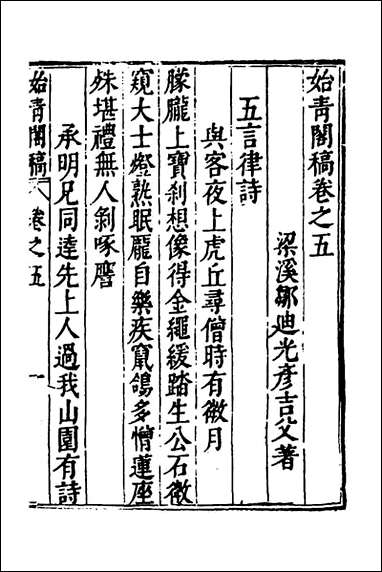 始青閣稿卷之五
梁溪鄒迪光彥吉父著
五言律詩
與客夜上虎丘尋僧時有微月
朦朧上寶剎想像得金繩緩踏生公石微
窺大士燈熟眠龎自樂疾竄鴿多憎蓮座
殊堪禮無人剝啄譍
承明兄同達先上人過我山園有詩
始青閣稿
卷之五
一